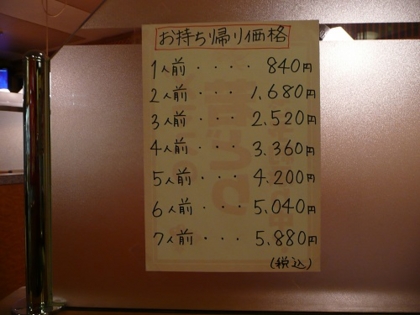 お持ち帰り価格
1人前・・・・840円
2人前・・・1,680円
3人前・・・2,520円
4人前・・・3,360円
5人前・・・4,200円
6人前・・・5,040円
7人前・・・5,880円
(税込)